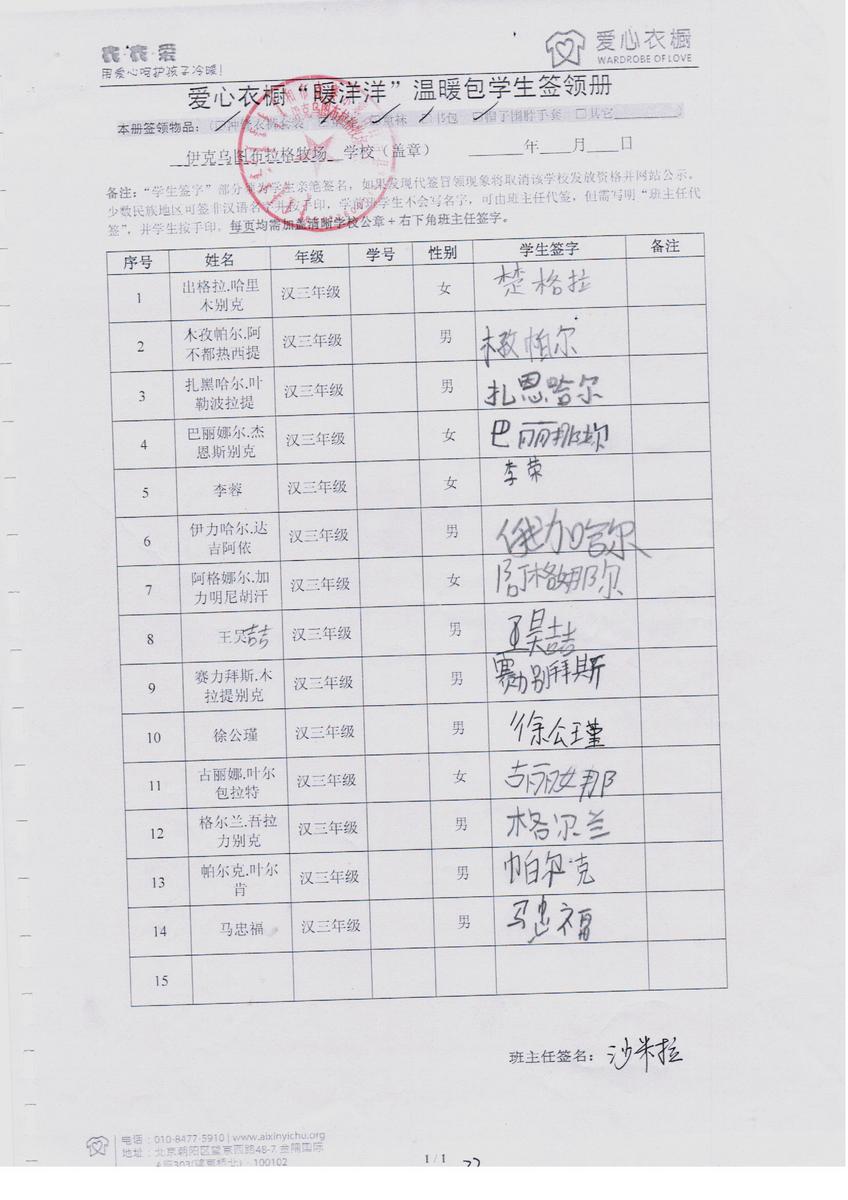 衣·衣·爱
用爱心呵护孩子冷暖!
爱心衣橱
WARDROBE OF LOVE
爱心衣橱“暖洋洋”温暖包学生签领册
本册签领物品: 书包 帽子围脖手套 □其它
伊克乌图布拉格牧场 学校(盖章) 年 月 日
备注:“学生签字”部分 为学生亲笔签名,如果发现代签冒领现象将取消该学校发放资格并网站公示。
少数民族地区可签非汉语名字并按手印,学前班学生不会写名字,可由班主任代签,但需写明“班主任代
签”,并学生按手印。每页均需加盖清晰学校公章+右下角班主任签字。
序号 姓名 年级 学号 性别 学生签字 备注
1 出格拉.哈里木别克 汉三年级 女 楚格拉
2 木孜帕尔.阿不都热西提 汉三年级 男 木孜帕尔
3 扎黑哈尔.叶勒波拉提 汉三年级 男 扎恩哈尔
4 巴丽娜尔.杰恩斯别克 汉三年级 女 巴丽那
5 李蓉 汉三年级 女 李荣
6 伊力哈尔.达吉阿依 汉三年级 男 俄加哈尔
7 阿格娜尔.加力明尼胡汗 汉三年级 女 阿格娜尔
8 王昊喆 汉三年级 男 王昊喆
9 赛力拜斯.木拉提别克 汉三年级 男 拜斯
10 徐公瑾 汉三年级 男 徐公瑾
11 古丽娜.叶尔包拉特 汉三年级 女 古丽娜
12 格尔兰.吾拉力别克 汉三年级 男 格尔兰
13 帕尔克.叶尔肯 汉三年级 男 帕尔克
14 马忠福 汉三年级 男 马忠福
15
班主任签名: 沙米拉
电话:010-8477-5910 | www.aixinyichu.org
地址:北京朝阳区望京西路48-7 金隅国际
A座303(望京桥北)·100102
1 / 1